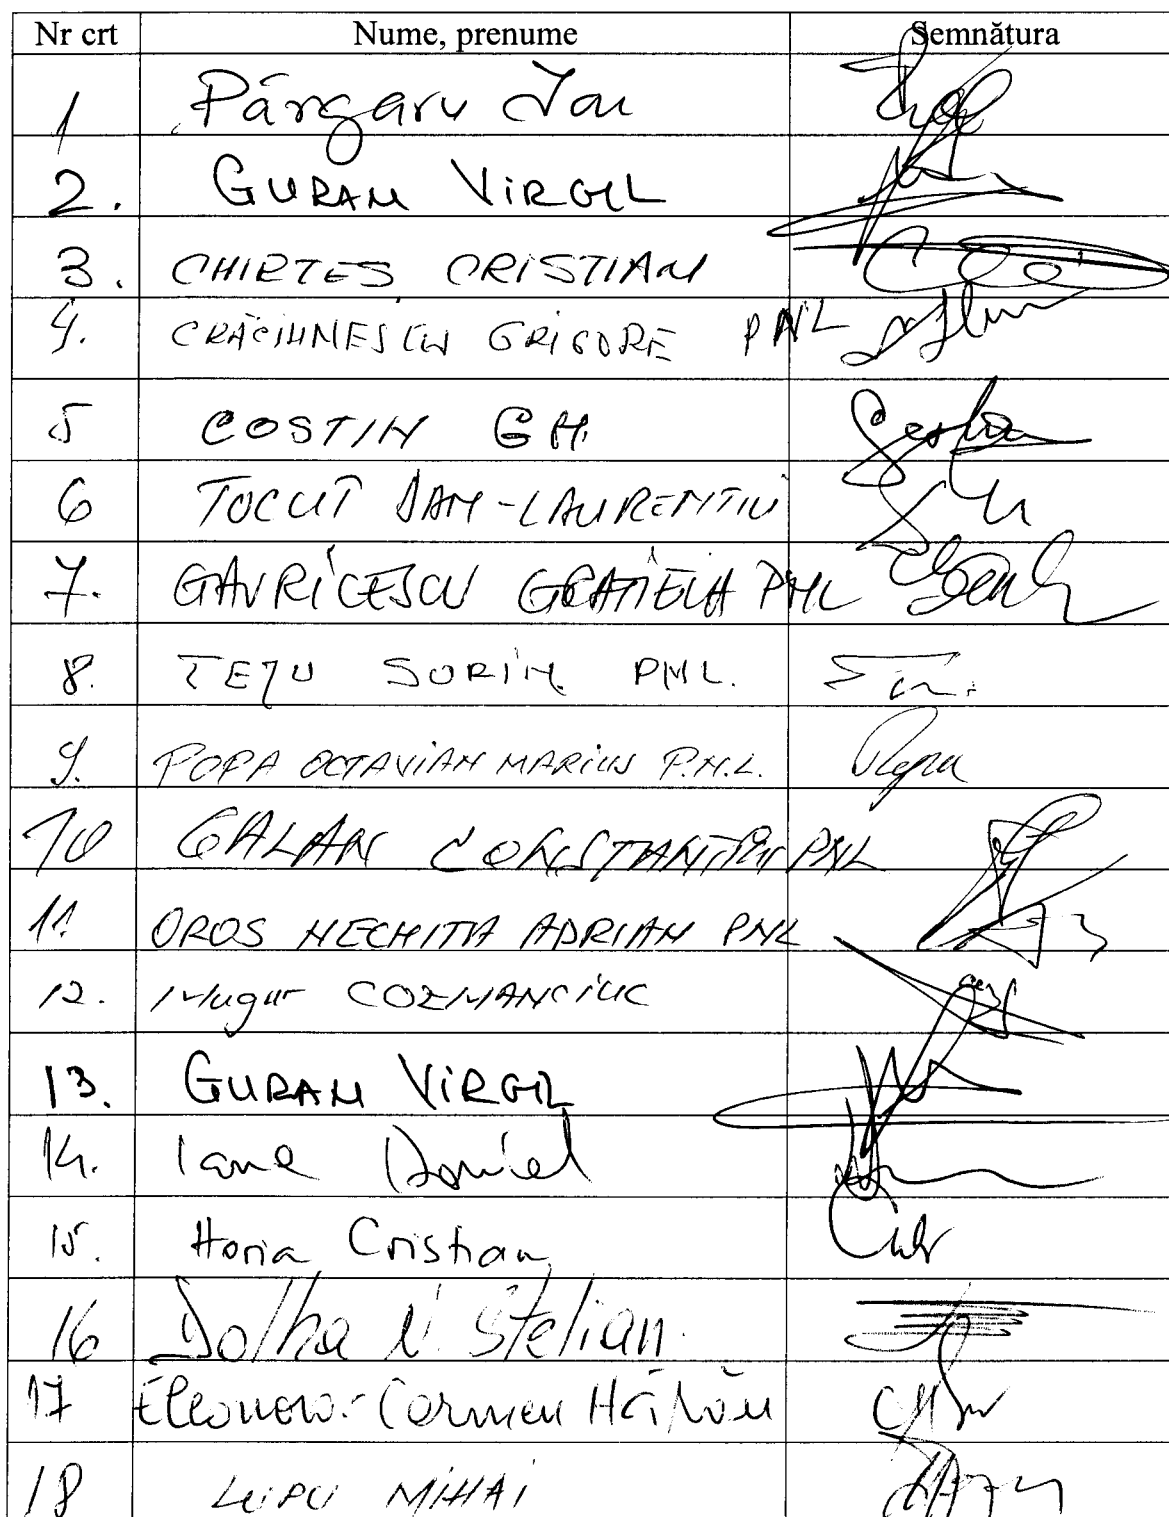 Nr crt Nume, prenume Semnătura
1 Pârgaru Ion
2. GURAN VIRGIL
3. CHIRTEȘ CRISTIAN
4. CRĂCIUNESCU GRIGORE PNL
5 COSTIN GH.
6 TOCUȚ DAN-LAURENȚIU
7. GAVRICESCU GRAȚIELA PNL
8. TEJU SORIN PNL.
9. POPA OCTAVIAN MARIUS P.N.L. Popa
10 GALAN CONSTANTIN PNL
11. OROS NECHITA ADRIAN PNL
12. Mugur COZMANCIUC
13. GURAN VIRGIL
14. Iane Daniel
15. Horia Cristian
16 Dolha N. Stelian
17 Eleonora-Carmen Hărău
18 LUPU MIHAI